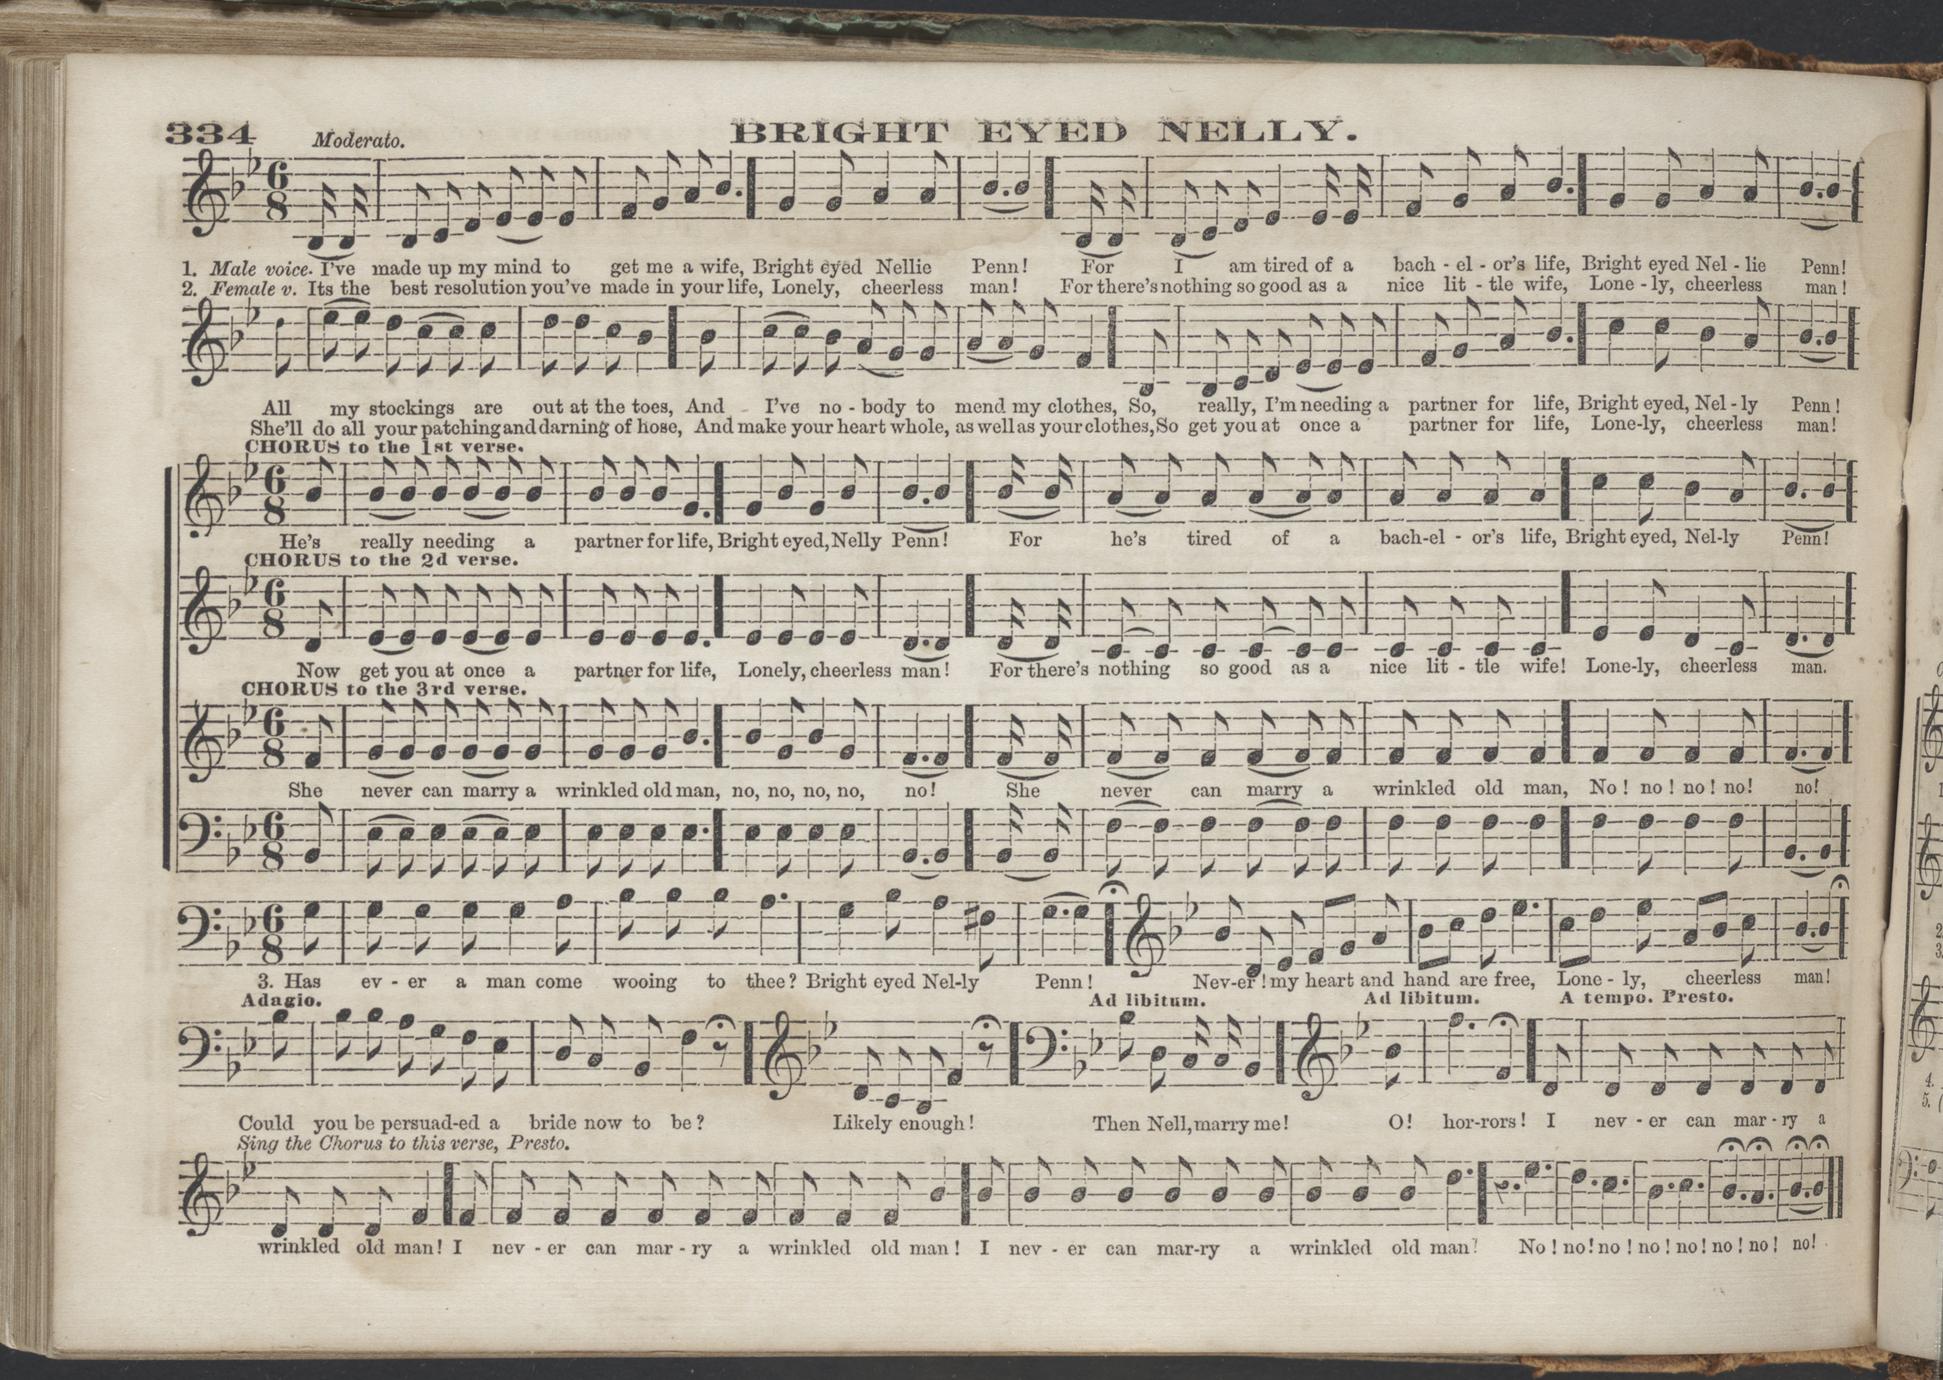 334 Moderato. BRIGHT EYED NELLY.
1. Male voice. I've made up my mind to get me a wife, Bright eyed Nellie Penn! For I am tired of a bach - el - or's life, Bright eyed Nel - lie Penn!
2. Female v. Its the best resolution you've made in your life, Lonely, cheerless man! For there's nothing so good as a nice lit - tle wife, Lone - ly, cheerless man!
All my stockings are out at the toes, And I've no - body to mend my clothes, So, really, I'm needing a partner for life, Bright eyed, Nel - ly Penn!
She'll do all your patching and darning of hose, And make your heart whole, as well as your clothes, So get you at once a partner for life, Lone-ly, cheerless man!
CHORUS to the 1st verse.
He's really needing a partner for life, Bright eyed, Nelly Penn! For he's tired of a bach-el - or's life, Bright eyed, Nel-ly Penn!
CHORUS to the 2d verse.
Now get you at once a partner for life, Lonely, cheerless man! For there's nothing so good as a nice lit - tle wife! Lone-ly, cheerless man.
CHORUS to the 3rd verse.
She never can marry a wrinkled old man, no, no, no, no, no! She never can marry a wrinkled old man, No! no! no! no! no!
3. Has ev - er a man come wooing to thee? Bright eyed Nel-ly Penn! Nev-er! my heart and hand are free, Lone - ly, cheerless man!
Adagio. Ad libitum. Ad libitum. A tempo. Presto.
Could you be persuad-ed a bride now to be? Likely enough! Then Nell, marry me! O! hor-rors! I nev - er can mar - ry a
Sing the Chorus to this verse, Presto.
wrinkled old man! I nev - er can mar - ry a wrinkled old man! I nev - er can mar-ry a wrinkled old man! No! no! no! no! no! no! no! no!